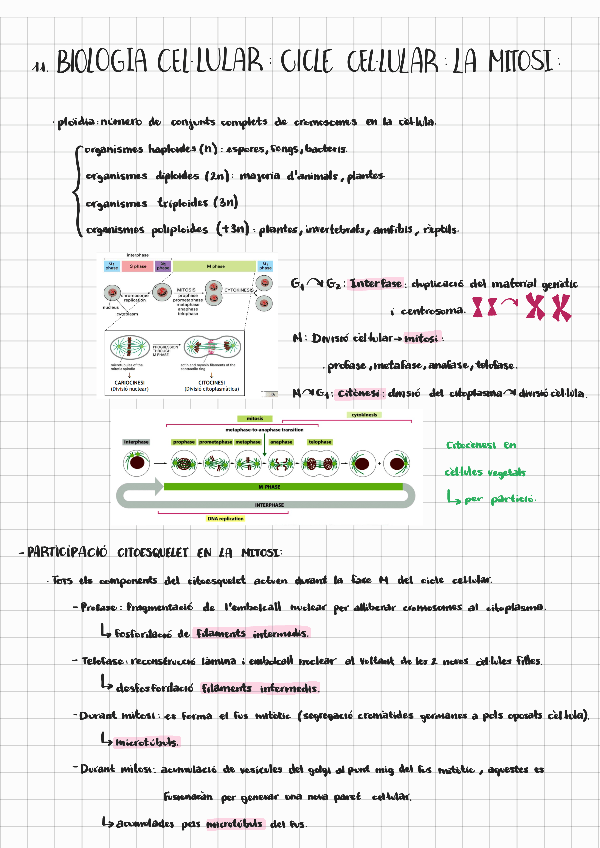 11. BIOLOGIA CEL·LULAR: CICLE CEL·LULAR: LA MITOSI:
· ploïdia: número de conjunts complets de cromosomes en la cèl·lula.
organismes haploides (n): espores, fongs, bacteris.
organismes diploides (2n): majoria d'animals, plantes
organismes triploides (3n)
organismes poliploides (+3n): plantes, invertebrats, amfibis, rèptils.
Interphase
G1 phase S phase G2 phase M phase G1 phase
chromosome replication
MITOSIS
prophase
prometaphase
metaphase
anaphase
telophase
CYTOKINESIS
nucleus
cytoplasm
PROGRESSION THROUGH M PHASE
microtubules of the mitotic spindle
actin and myosin filaments of the contractile ring
CARIOCINESI
(Divisió nuclear)
CITOCINESI
(Divisió citoplasmàtica)
G1 G2: Interfase: duplicació del material genètic
i centrosoma.
M: Divisió cel·lular → mitosi:
· profase, metafase, anafase, telofase.
M G1: Citònesi: divisió del citoplasma divisió cèl·lula.
mitosis
cytokinesis
metaphase-to-anaphase transition
interphase prophase prometaphase metaphase anaphase telophase
M PHASE
INTERPHASE
DNA replication
Citocènesi en
cèl·lules vegetals
↳ per partició.
- PARTICIPACIÓ CITOESQUELET EN LA MITOSI:
· Tots els components del citoesquelet actuen durant la fase M del cicle cel·lular.
- Profase: Fragmentació de l'embolcall nuclear per alliberar cromosomes al citoplasma.
↳ fosforilació de filaments intermedis.
- Telofase: reconstrucció làmina i embolcall nuclear al voltant de les 2 noves cèl·lules filles.
↳ desfosforilació filaments intermedis.
- Durant mitosi: es forma el fus mitòtic (segregació cromàtides germanes a pols oposats cèl·lula).
↳ microtúbuls.
- Durant mitosi: acumulació de vesícules del golgi al punt mig del fus mitòtic, aquestes es
fusionaran per generar una nova paret cel·lular.
↳ acumulades pels microtúbuls del fus.